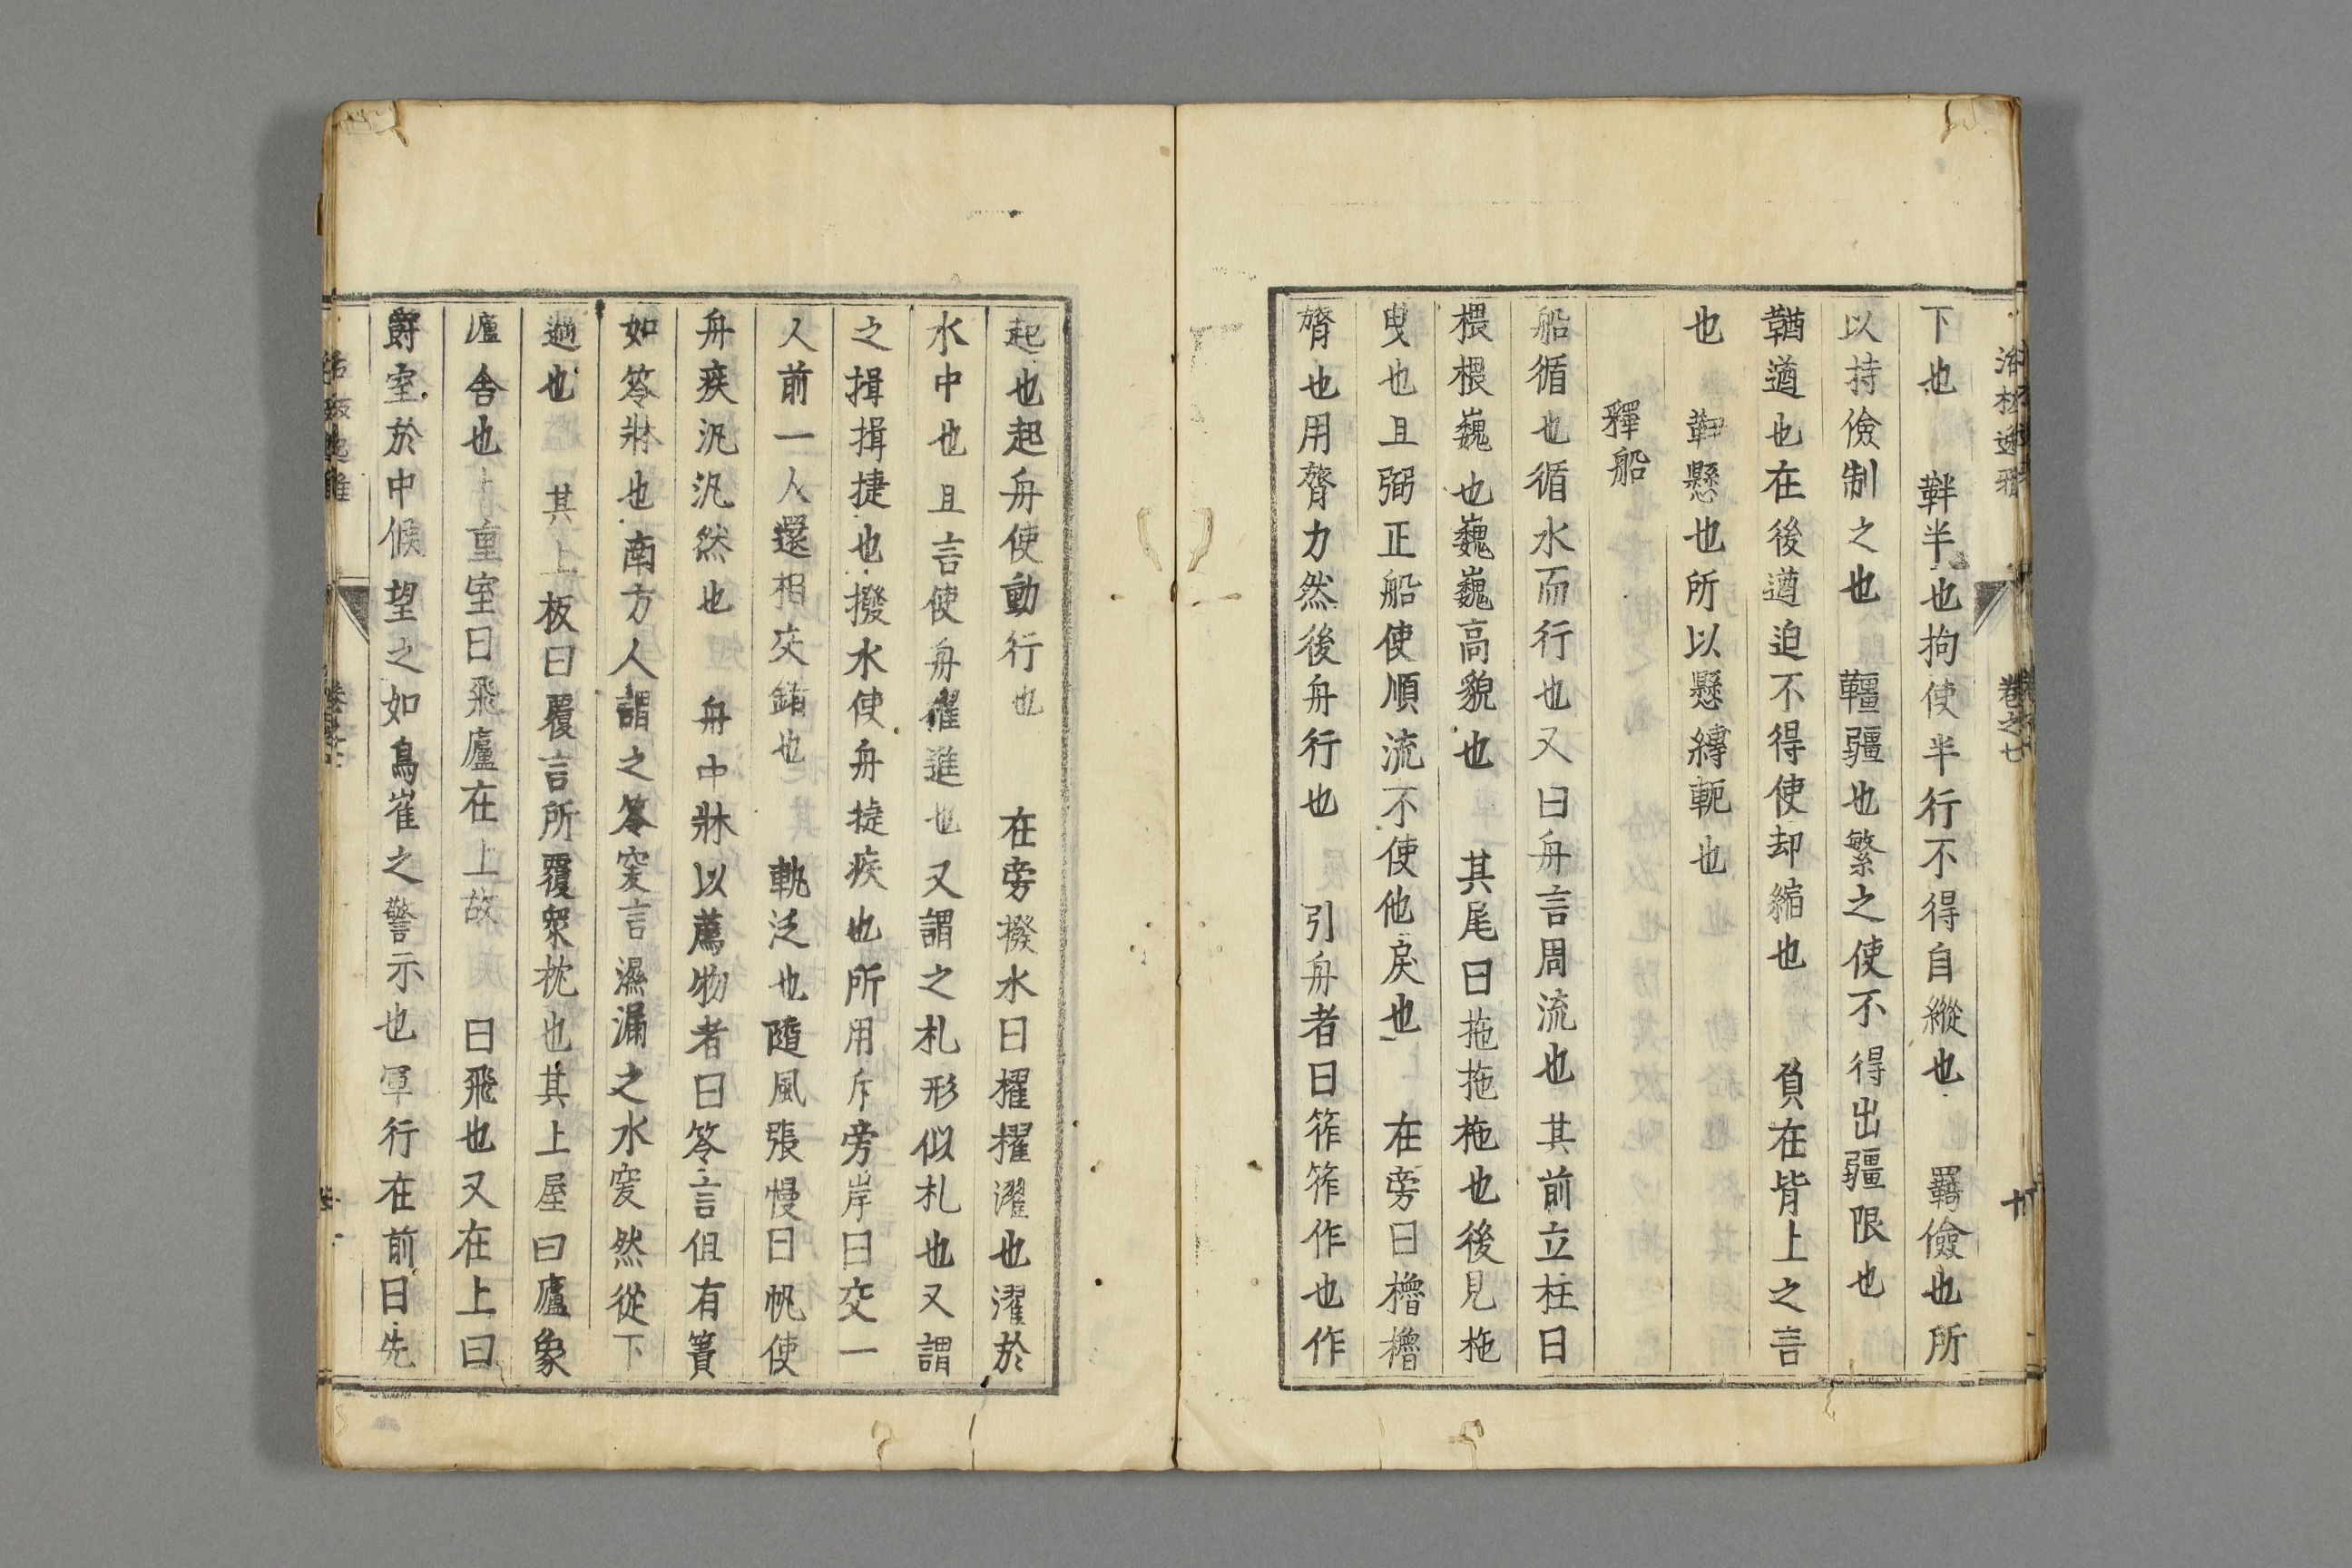 下也 靽半也拘使半行不得自縱也 羈儉也所
以持儉制之也 韁疆也繫之使不得出疆限也
鞧遒也在後遒迫不得使却縮也 負在背上之言
也 鞙懸也所以懸縛軛也
釋船
船循也循水而行也又曰舟言周流也其前立柱曰
椳椳巍也巍巍高貌也 其尾曰拖拖拖也後見拖
曳也且弼正船使順流不使他戾也 在旁曰櫓櫓
膂也用膂力然後舟行也 引舟者曰筰筰作也作
卷之七
十
起也起舟使動行也 在旁撥水曰櫂櫂濯也濯於
水中也且言使舟櫂進也又謂之札形似札也又謂
之揖揖捷也撥水使舟捷疾也所用斥旁岸曰交一
人前一人還相交錯也 軓泛也隨風張幔曰帆使
舟疾汎汎然也 舟中牀以薦物者曰笭言但有簀
如笭牀也南方人謂之笭窔言濕漏之水窔然從下
過也 其上板曰覆言所覆衆枕也其上屋曰廬象
廬舍也上重室曰飛廬在上故 曰飛也又在上曰
爵室於中候望之如鳥雀之警示也軍行在前曰先